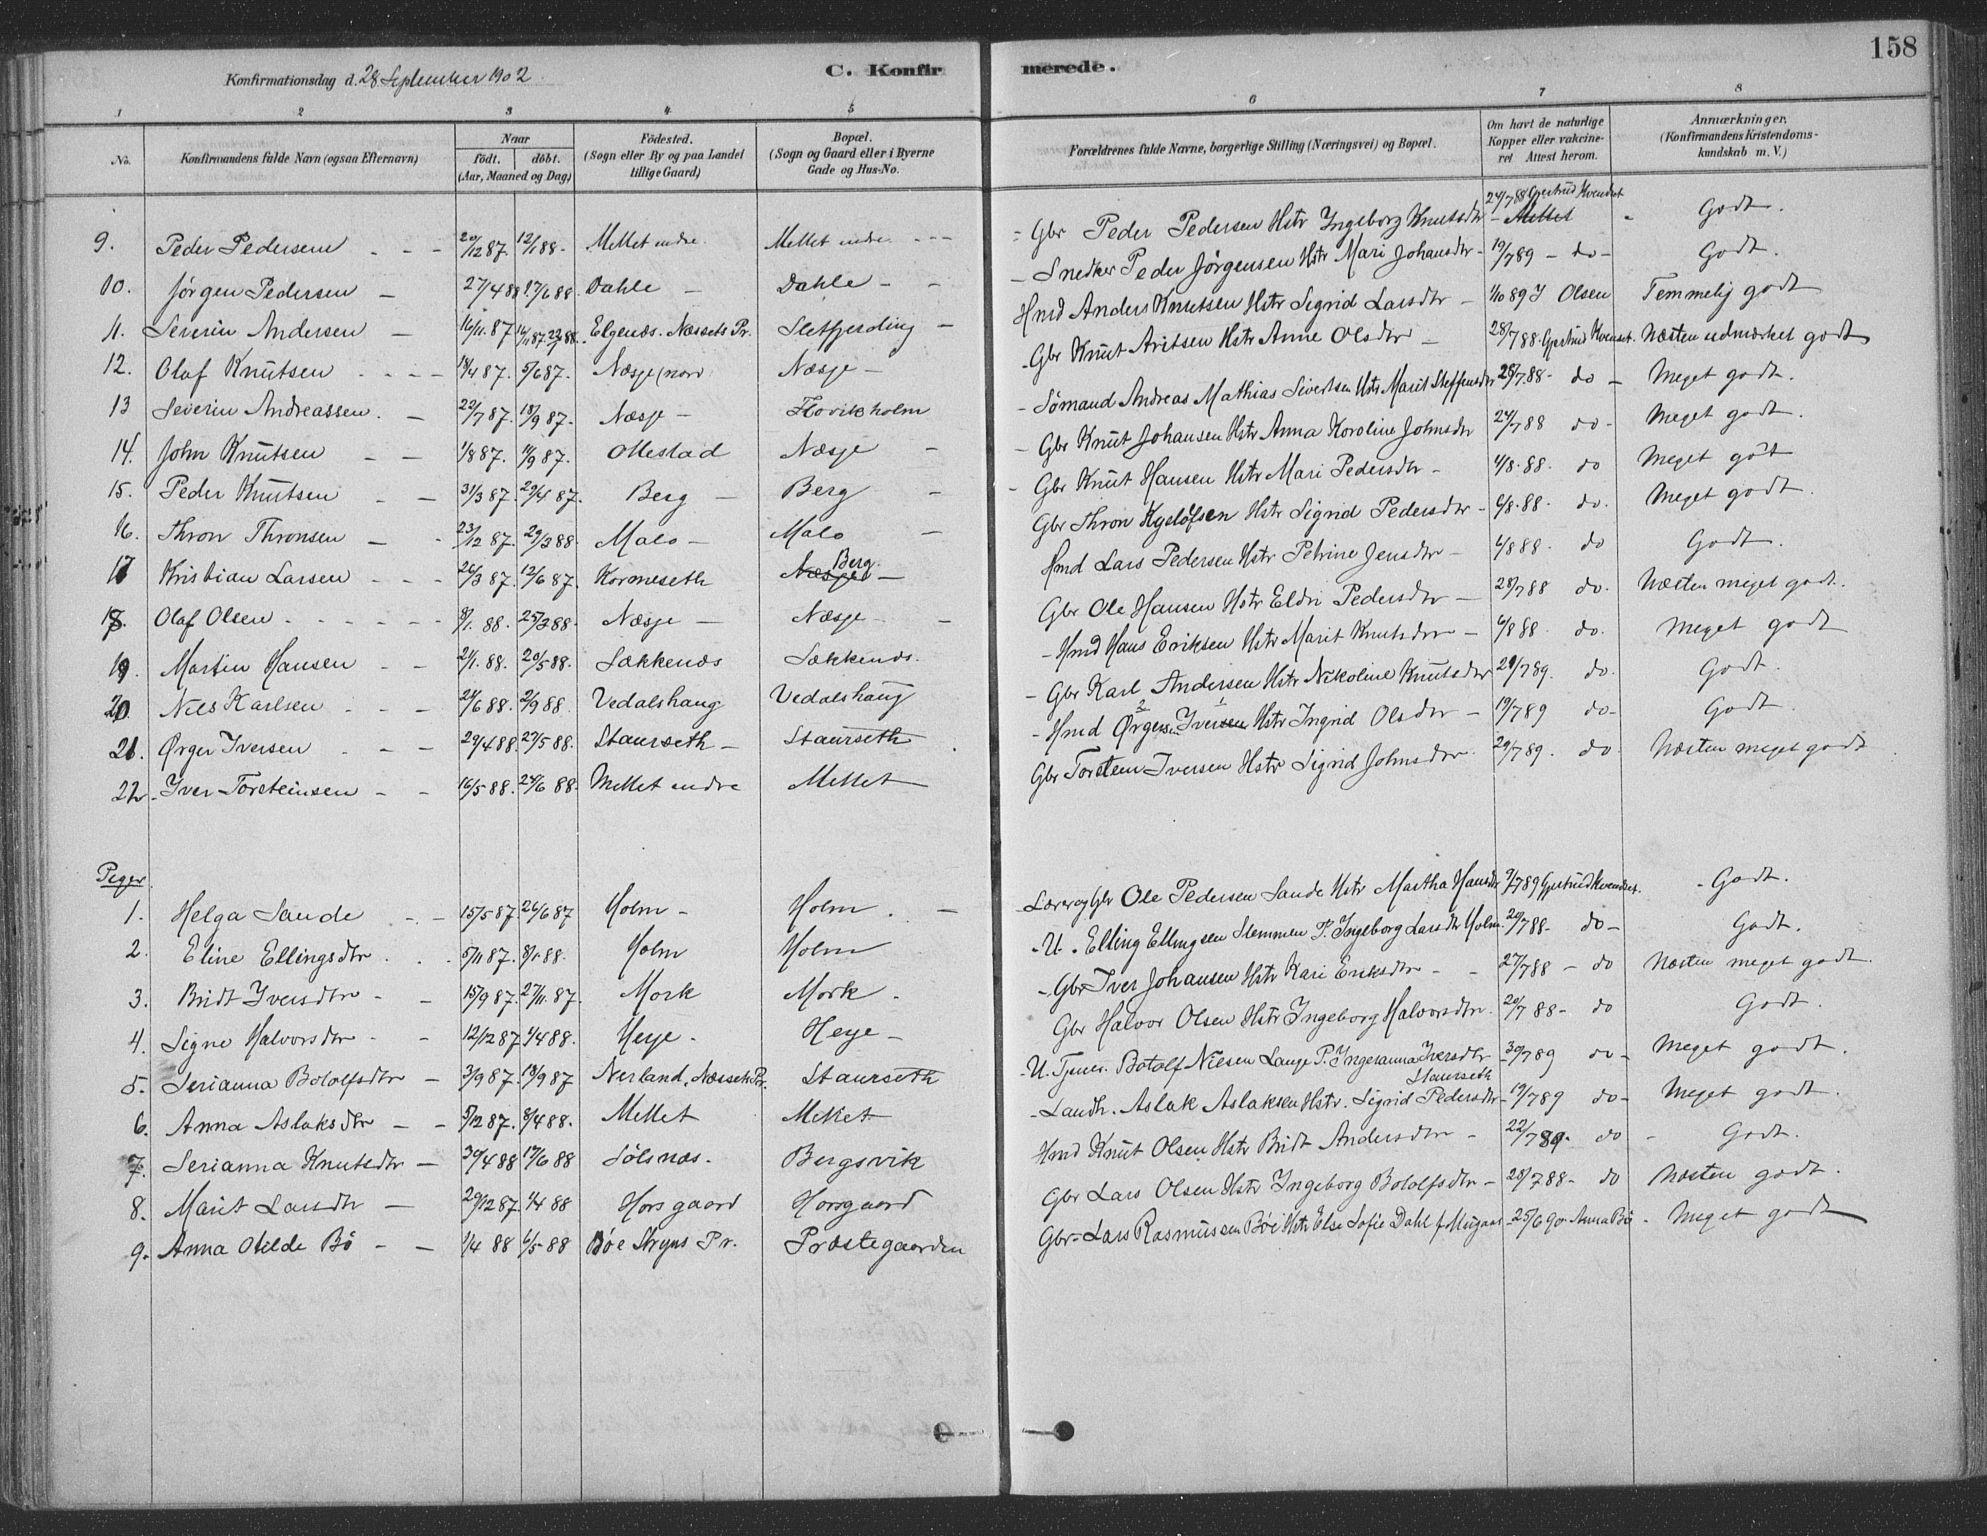 158
Konfirmationsdag d. 28 September 1902. C. Konfirmerede.
1 2 3 4 5 6 7 8
No. Konfirmandens fulde Navn (ogsaa Efternavn) Naar födt. döbt. (Aar, Maaned og Dag) Födested. (Sogn eller By og paa Landet tillige Gaard) Bopæl. (Sogn og Gaard eller i Byerne Gade og Hus-No. Forældrenes fulde Navne, borgerlige Stilling (Næringsvei) og Bopæl. Om havt de naturlige Kopper eller vakcineret Attest herom. Anmærkninger. (Konfirmandens Kristendomskundskab m. V.)
9. Peder Pedersen 20/12 87. 12/1 88. Mettet indre. Mettet indre. Gbr Peder Pedersen Hstr Ingeborg Knutsdtr 24/7 88 Gjertrud Kvendset Mettet Godt.
10. Jørgen Pedersen 27/4 88 17/6 88. Dahle Dahle Snedker Peder Jørgensen Hstr Mari Johansdtr 19/7 89 do Godt.
11. Severin Andersen 16/11. 87. 22/ 88. Elgenæs. Næssets Pr. Sletfjerding Hmd Anders Knutsen Hstr Sigrid Larsdtr 1/10 89 J Olsen Temmelig godt
12. Olaf Knutsen 18/4 87. 5/6 87. Næsje nord Næsje Gbr Knut Aritsen Hstr Anne Olsdtr 28/7 88. Gjertrud Kvenset. Næsten udmærket godt
13 Severin Andreassen. 22/7 87. 18/9 87. Næsje Flovikholm Sømand Andreas Mathias Sivertsen Hstr Marit Steffensdtr 28/7 88. do Meget godt.
14. John Knutsen 1/8 87. 11/9 87. Ottestad Næsje Gbr Knut Johansen Hstr Anna Karoline Johnsdtr 24/7 88 do Meget godt.
15. Peder Knutsen 31/3 87. 29/4 87. Berg Berg Gbr Knut Hansen Hstr Mari Pedersdtr 4/8. 88. do Meget godt
16. Thron Thronsen 23/12 87. 29/3 88. Malo Malo Gbr Thron Kjelöfsen Hstr Sigrid Pedersdtr 6/8. 88. do. Meget godt.
17 Kristian Larsen 26/3 87. 12/6 87. Korneseth Næsje Berg. Hmd Lars Pedersen Hstr Petrine Jensdtr 4/8 88. do Godt.
18. Olaf Olsen 8/1. 88. 25/3 88. Næsje Næsje Gbr Ole Hansen Hstr Eldri Pedersdtr 28/7 88 do. Næsten meget godt.
19. Martin Hansen 21/1. 88. 20/5 88. Sækkenæs Sækkenæs. Hmd Hans Eriksen Hstr Marit Knutsdtr 6/8 88. do. Meget godt
20. Nils Karlsen 24/6 88. 2/9 88. Vedalshaug Vedalshaug Gbr Karl Andersen Hstr Nikoline Knutsdtr 29/7 89. do. Godt.
21. Ørger Iversen 29/4 88. 27/5 88. Staurseth Staurseth Hmd Ørgersen Iversen Hstr Ingrid Olsdtr 19/7 89 do Godt.
22. Iver Torsteinsen 16/5 88. 24/6 88. Mettet indre Mettet Gbr Torstein Iversen Hstr Sigrid Johnsdtr 29/7 89. do. Næsten meget godt
Piger
1. Helga Sande 15/5 87. 26/6 87 Holm Holm Lærer og Gbr Ole Pedersen Sande Hstr Martha Hansdtr 7/7 89 Gjertrud Kvendset. Godt.
2. Eline Ellingsdtr 5/11 87. 8/1. 88. Holm Holm U. Elling Ellingsen Stemmen P. Ingeborg Larsdtr Holm. 20/7 88. do Godt.
3. Bridt Iversdtr 15/9 87. 27/11. 87. Mork Mork Gbr Iver Johansen Hstr Kari Eriksdtr 27/7 88 do Næsten meget godt.
4. Signe Halvorsdtr 12/12 87 1/4 88. Heje. Heje Gbr Halvor Olsen Hstr Ingeborg Halvorsdtr. 20/7 88 do Godt.
5. Serianna Botolfsdtr 3/9 87. 18/9 87 Nerland. Næssets Pr. Staurseth U. Tjener Botolf Nilsen Lange P. Ingeranna Iversdtr Staurseth 30/7 89 do Meget godt.
6. Anna Aslaksdtr 5/12 87. 8/4 88. Mettet Mettet Landh. Aslak Aslaksen Hstr. Sigrid Pedersdtr 19/7 89 do Meget godt.
7. Serianna Knutsdtr 30/4 88 17/6 88 Sølsnæs. Bergsvik Hmd Knut Olsen Hstr Bridt Andersdtr 22/7 89. do Godt.
8. Marit Larsdtr 29/12 87. 1/4 88 Horsgaard Horsgaard Gbr Lars Olsen Hstr Ingeborg Botolfsdtr 28/7 88. do Næsten godt.
9. Anna Otilde Bö 1/4 88 6/5 88 Böe Stryns Pr. Præstegaarden Gbr Lars Rasmussen Böe Hstr Else Sofie Dahl f. Mugaas 25/6 90. Anna Bö Meget godt